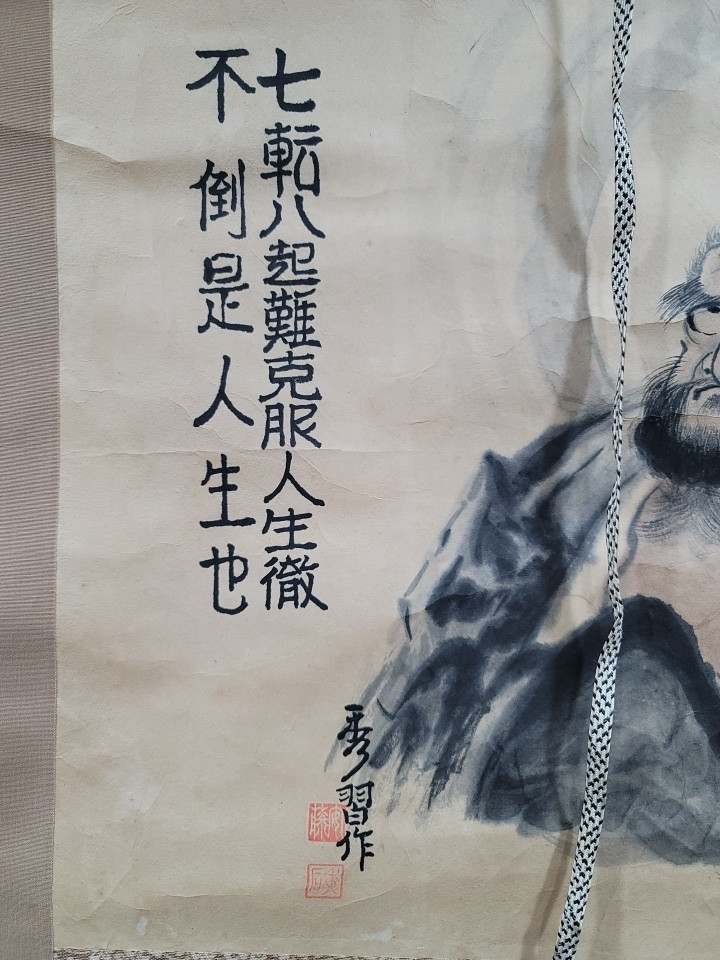 七転八起難克服人生徹
不倒是人生也
秀習作